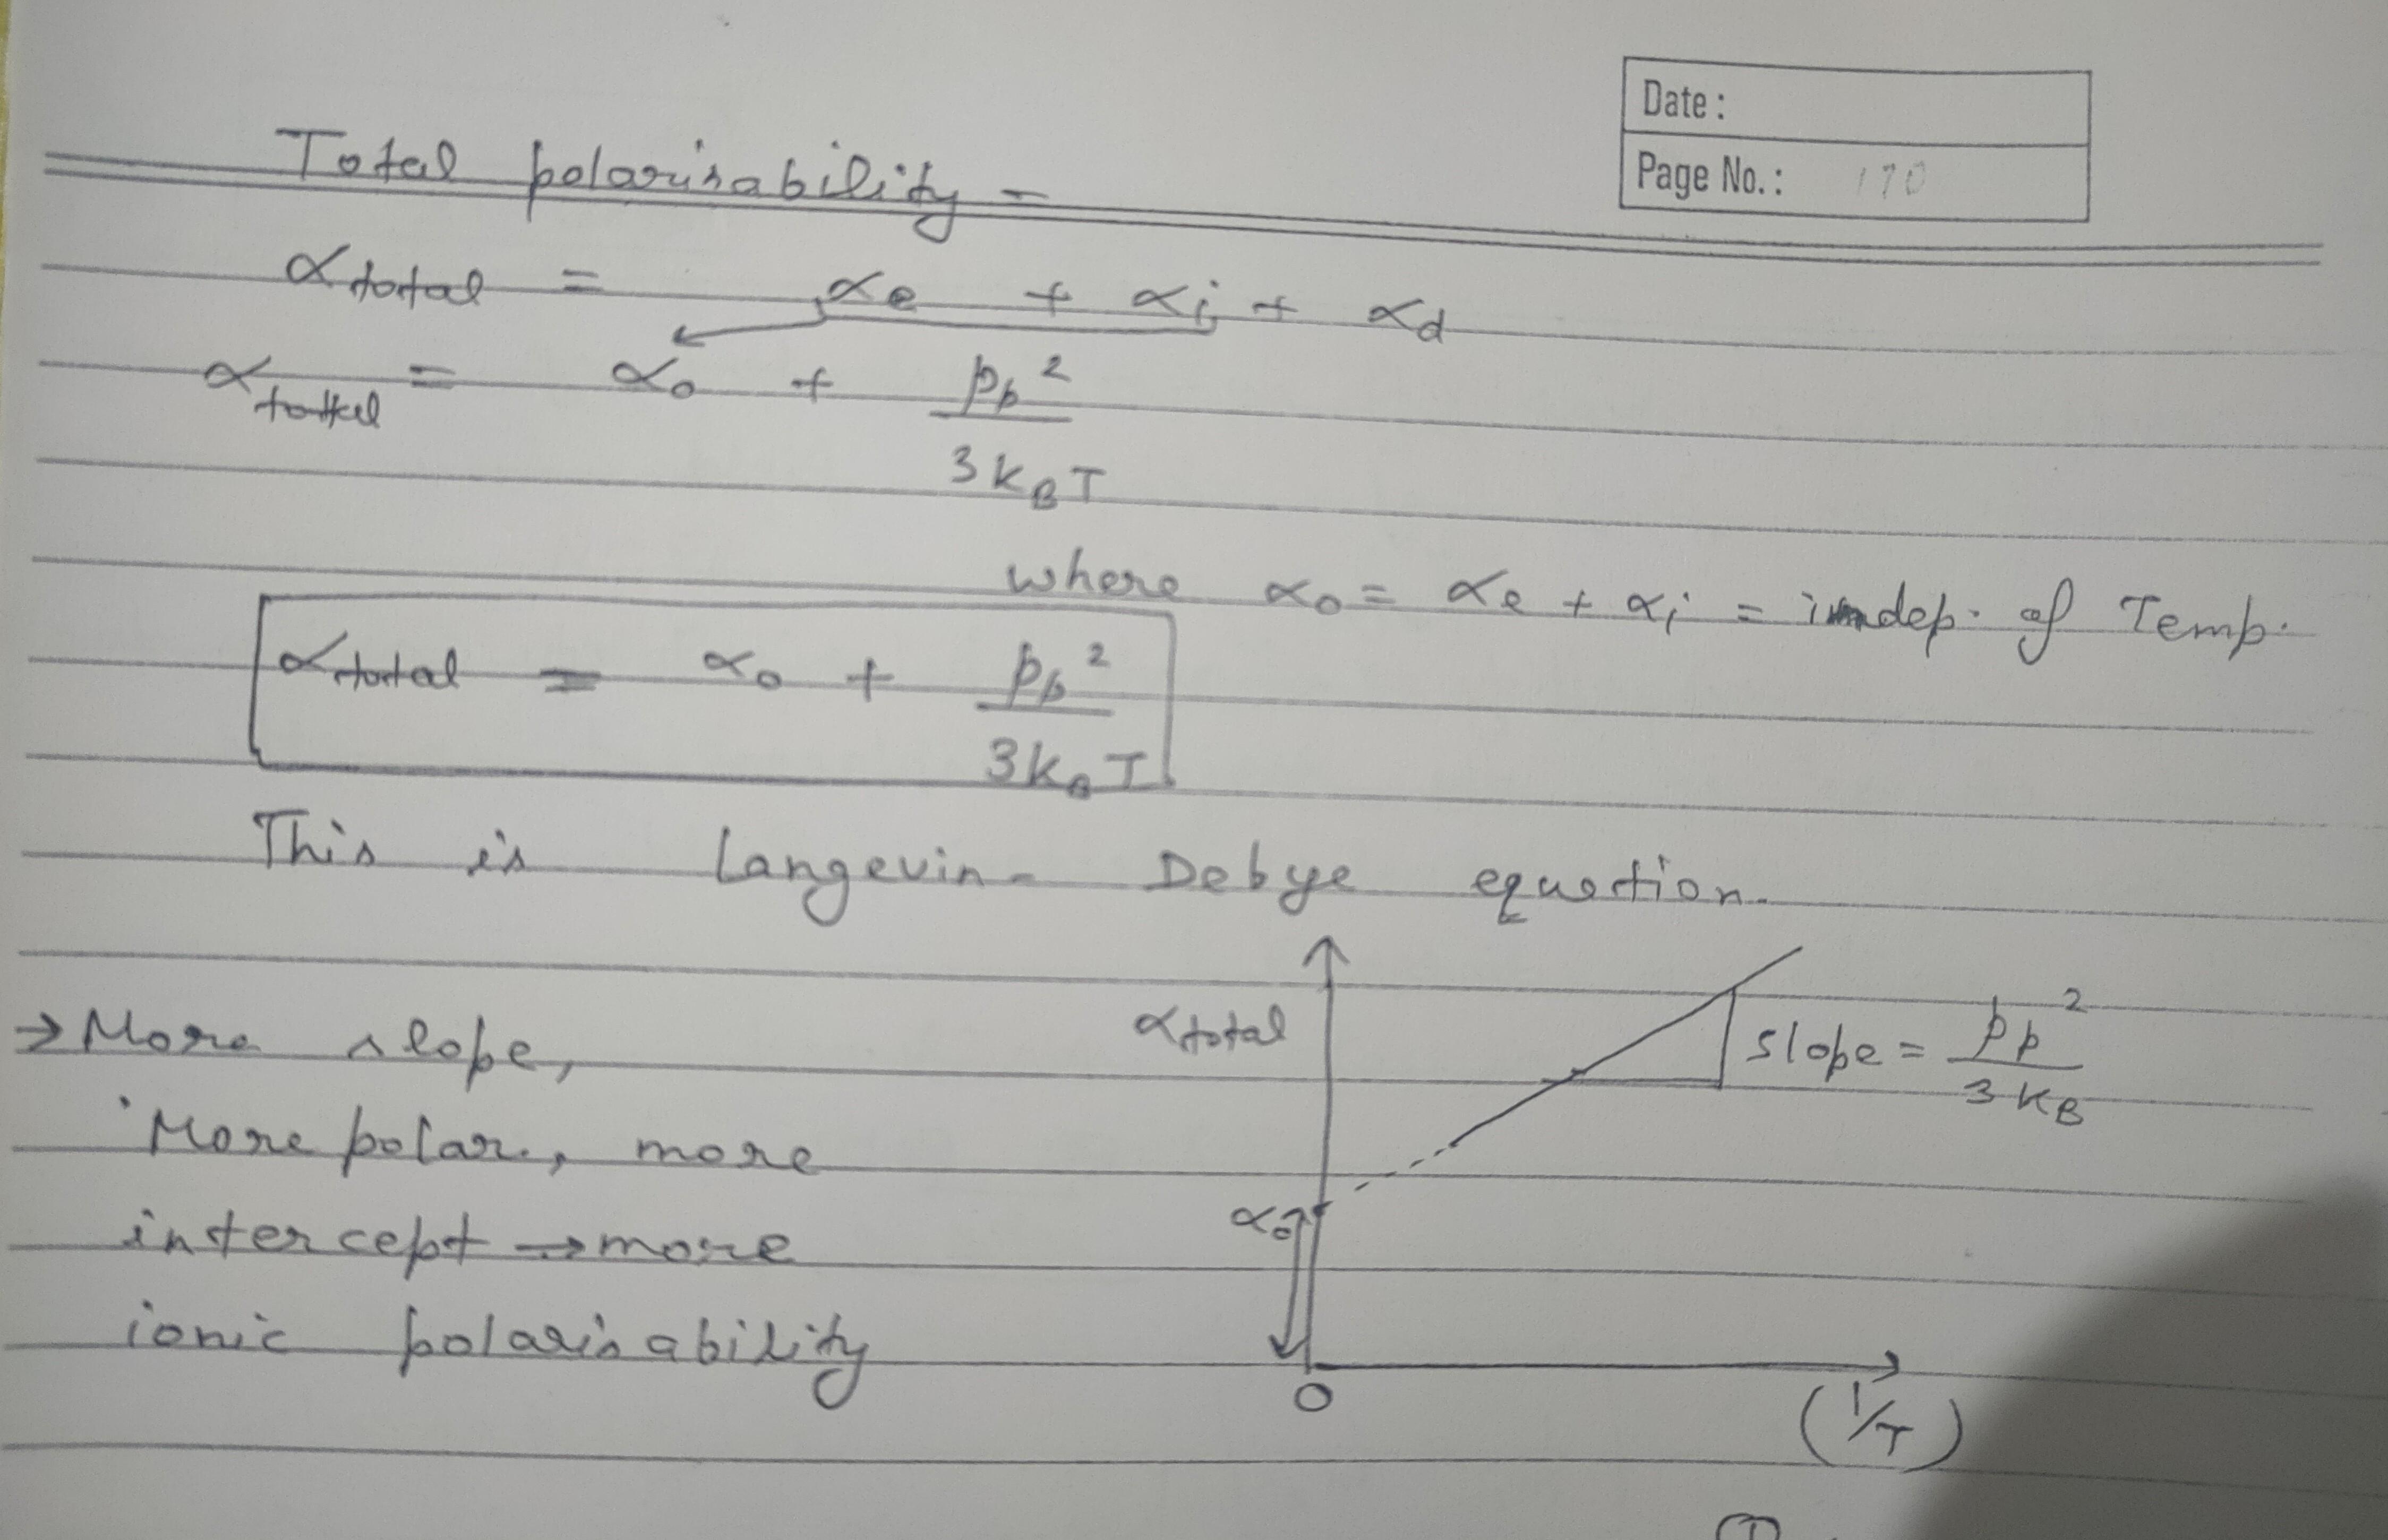 Date :
Page No. : 170
Total polarisability -
α total = αe + αi + αd
α total = α0 + pp² / 3kBT
where α0 = αe + αi = indep. of Temp.
α total = α0 + pp² / 3kBT
This is Langevin - Debye equation.
→ More slope,
More polar, more
intercept → more
ionic polarisability
α total
slope = pp² / 3kB
α0
0
(1/T)